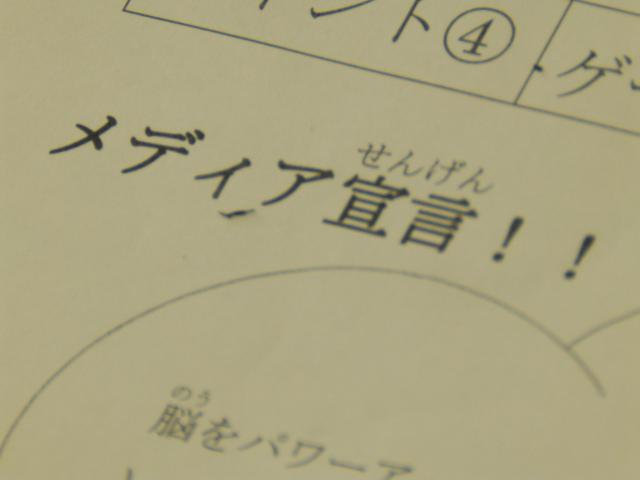 ント④
ゲ
メディア宣言！！
せんげん
脳をパワーア
のう